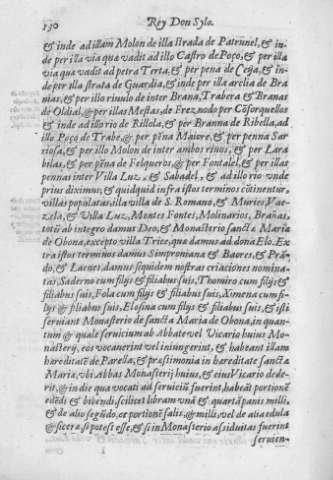 130 Rey Don Sylo.
& inde ad illam Molon de illa strada de Patrunel, & in-
de per illa via qua vadit ad illo Castro de Poço, & per illa
via qua vadit ad petra Terta, & per pena de Ceija, & in-
de per illa strata de Guardia, & inde per illa arelia de Bra
nias, & per illo rinulo de inter Brana, Trabera & Branas
de Oldial, & per illas Mestas, de Freznedo per Coforquellos
& inde ad illo rio de Rillola, & per Branna de Ribella, ad
illo Poço de Trabe, & per pēna Maiore, & per penna Sar
riosa, & per illo Molon de inter ambos rinos, & per Lara
bilas, & per pēna de Felgueros, & per Fontalel, & per illas
pennas inter Villa Luz, & Sabadel, & ad illo rio vnde
prius diximus, & quidquid infra istos terminos cōtinentur,
villas populatas, illa villa de S. Romano, & Muries, Vae-
zela, & Villa Luz, Montes Fontes, Molinarios, Brañas,
totū ab integro damus Deo, & Monasterio sancta Maria
de Obona, excepto villa Trice, qua damus ad dona Elo. Ex
tra istos terminos damus Simproniana & Baores, & Prā-
do, & Laenes, damus sequidem nostras criaciones nomina-
tas, Saderno cum filijs & filiabus suis, Thomiro cum filijs &
filiabus suis, Fola cum filijs & filiabus suis, Ximena cum fi-
lijs & filiabus suis, Elosina cum filijs & filiabus suis, & isti
seruiant Monasterio de sancta Maria de Obona, in quan-
tum & quale seruicium ab Abbate vel Vicario huius Mo-
nasterij, eos vocauerint vel iniungerint, & habeant illam
hereditatē de Parella, & prastimonia in hereditate sancta
Maria, vbi Abbas Monasterij huius, & eius Vicario dede-
rit, & in die qua vocati ad seruiciū fuerint, habeāt portionē
edēdi & bibendi, scilicet libram vnā & quartā panis milli,
& de alio segūdo, et portionē salis, & milli, vel de alia edula
& sicera, si potest esse, & si in Monasterio assiduitas fuerint
seruien-